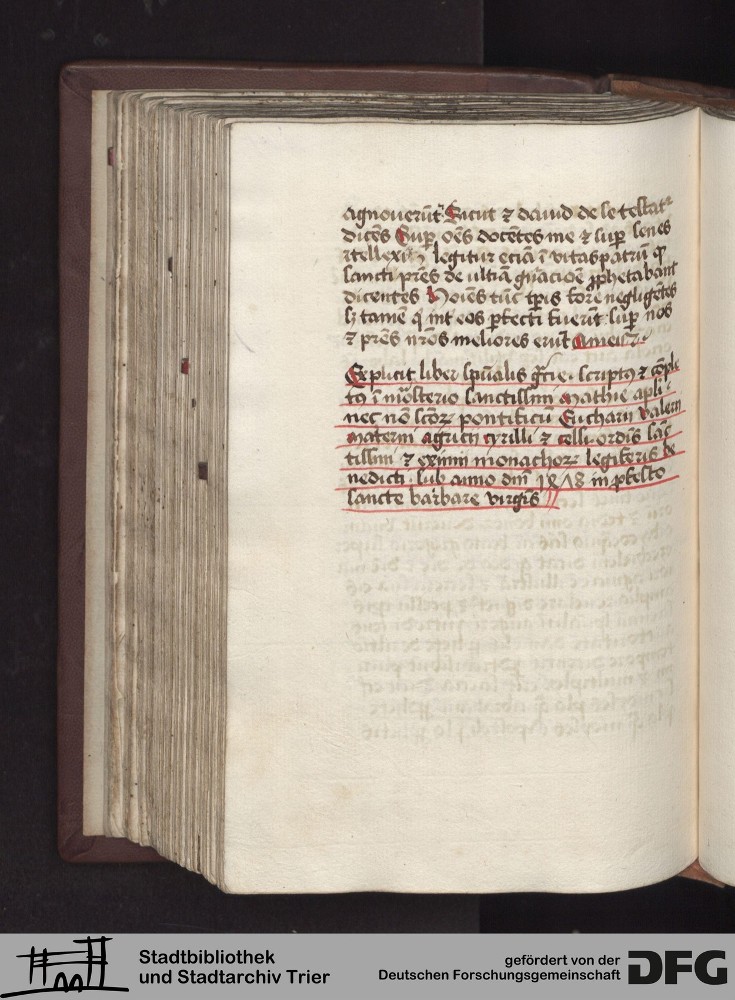 agnoueru͂t Sicut ⁊ dauid de se testat᷑
dice͂s Sup͛ oe͂s docentes me ⁊ sup͛ senes
i͂tellexi legitur ecia͂ i͂ vitaspatru͂ ꝙ
sancti p͂res de vltia͂ gn͂acio͂e ꝓphetaba͂t
dicentes Hoi͂es tu͂c tp͂is fore neglige͂tes
h͂ tame͂ q͛ int eos ꝑfecti fueru͂t sup͛ nos
⁊ p͂res nr͂os meliores eru͂t Amen
Explicit liber spu͂alis gr͂e scriptꝰ ⁊ co͂ple
tꝰ i͂ mo͂sterio sanctissimi Mathie apli͂
nec no͂ sco͂rꝝ pontificu͂ Eucharii valerii
Materni agricii cyrilli ⁊ celsi ordi͂s sa͂c
tissimi ⁊ eximii monachorꝝ legiferis be
nedicti sub anno dn͂i 1818 in ꝓfesto
sancte barbare virgi͂s
Stadtbibliothek
und Stadtarchiv Trier
gefördert von der
Deutschen Forschungsgemeinschaft
DFG